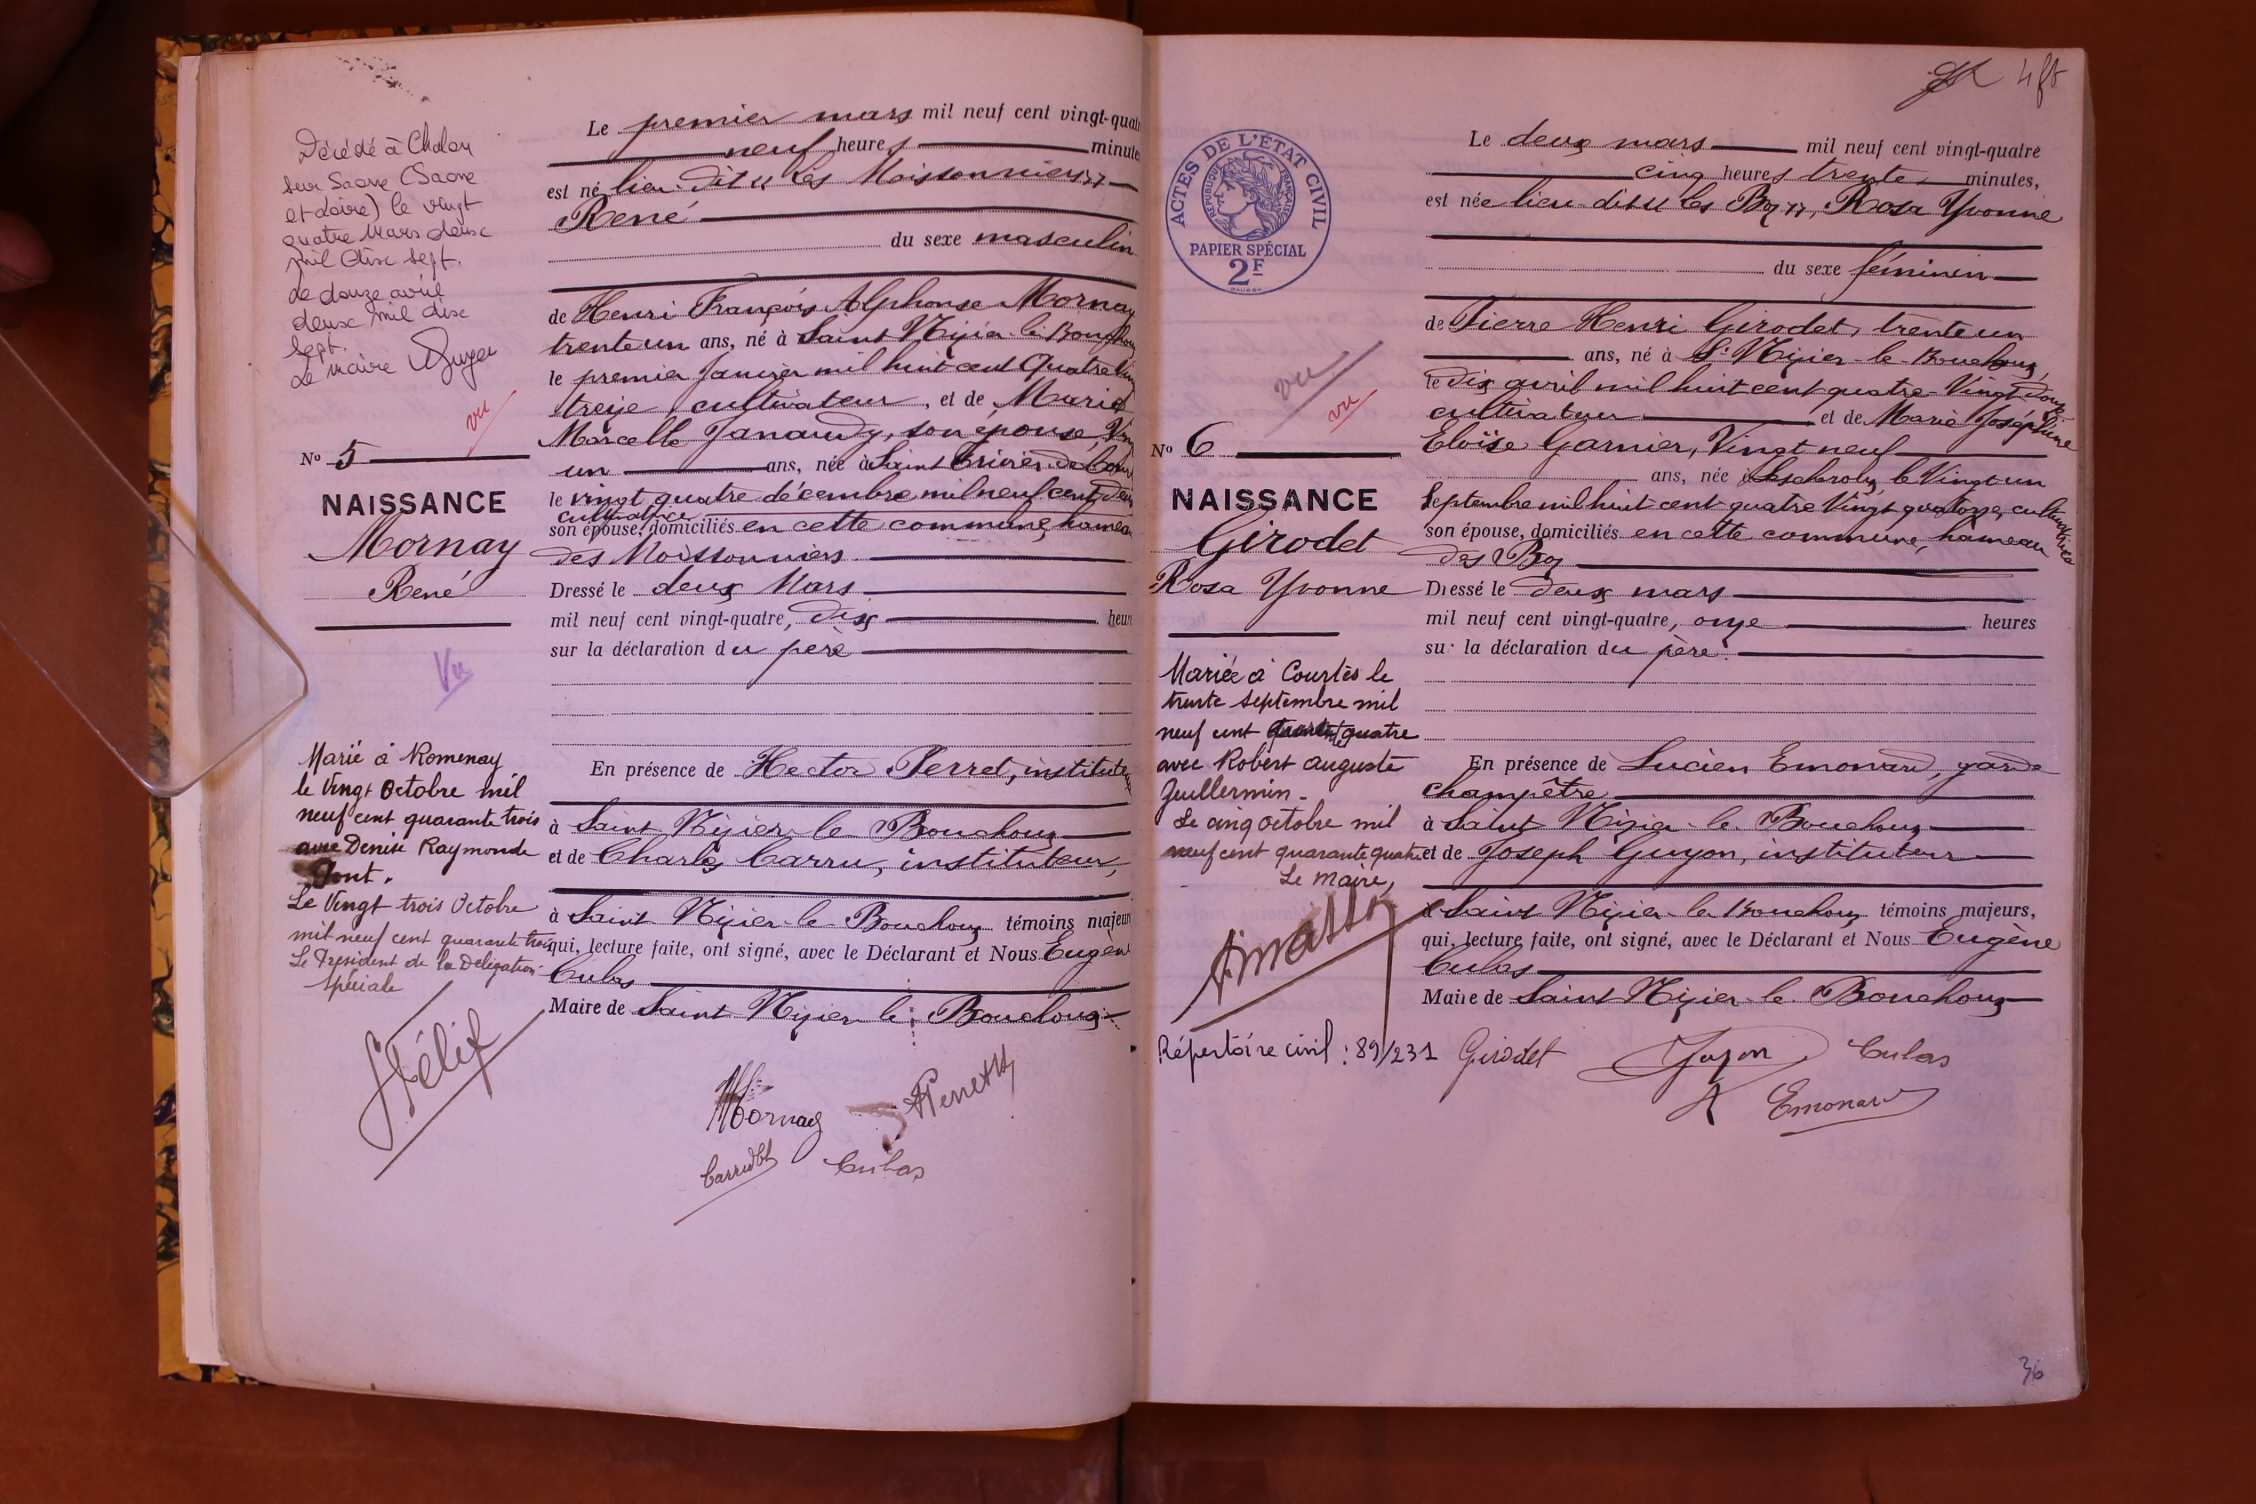 Décédé à Chalon
sur Saone (Saone
et Loire) le vingt
quatre Mars deux
mil dix sept.
Le douze avril
deux mil dix
sept.
Le Maire
vu
No 5
NAISSANCE
Mornay
René
Vu
Marié à Romenay
le Vingt Octobre mil
neuf cent quarante trois
avec Denise Raymonde
Pont.
Le Vingt trois Octobre
mil neuf cent quarante trois
Le Président de la Délégation
Spéciale
Félix
Le premier mars mil neuf cent vingt-quatr
neuf heures minute
est né lieu-dit "Les Moissonniers"
René
du sexe masculin
de Henri François Alphonse Mornay
trente un ans, né à Saint Nizier-le-Bouchoux
le premier Janvier mil huit cent Quatre Ving
treize, cultivateur, et de Marie
Marcelle Janaudy, son épouse, Ving
un ans, née à Saint Trivier-de-Cour
le vingt quatre décembre mil neuf cent deux
cultivatrice
son épouse, domiciliés en cette commune, hameau
des Moissonniers
Dressé le deux Mars
mil neuf cent vingt-quatre, dix heur
sur la déclaration du père
En présence de Hector Perret, instituteur
à Saint Nizier-le-Bouchoux
et de Charles Carru, instituteur,
à Saint Nizier-le-Bouchoux témoins majeur
qui, lecture faite, ont signé, avec le Déclarant et Nous Eugène
Culas
Maire de Saint Nizier le Bouchoux
Mornay
Perret
Culas
4
ACTES DE L'ÉTAT CIVIL
RÉPUBLIQUE FRANÇAISE
PAPIER SPÉCIAL
2F
vu
vu
No 6
NAISSANCE
Girodet
Rosa Yvonne
Mariée à Courtes le
trente septembre mil
neuf cent quarante quatre
avec Robert Auguste
Guillermin.
Le cinq octobre mil
neuf cent quarante quatre
Le Maire,
Répertoire civil : 89/231
Le deux mars mil neuf cent vingt-quatre
cinq heures trente minutes,
est née lieu-dit "les Boz", Rosa Yvonne
du sexe féminin
de Pierre Henri Girodet, trente un
ans, né à St Nizier-le-Bouchoux,
le dix avril mil huit cent quatre-Vingt douze
cultivateur et de Marie Joséphine
Eloïse Garnier, Vingt neuf
ans, née à Lescheroux, le Vingt un
Septembre mil huit cent quatre Vingt quatorze, cultivatrice
son épouse, domiciliés en cette commune, hameau
des Boz
Dressé le deux mars
mil neuf cent vingt-quatre, onze heures
sur la déclaration du père.
En présence de Lucien Emonard, garde
champêtre
à Saint Nizier-le-Bouchoux
et de Joseph Guyon, instituteur
à Saint Nizier-le-Bouchoux témoins majeurs,
qui, lecture faite, ont signé, avec le Déclarant et Nous Eugène
Culas
Maire de Saint Nizier-le-Bouchoux
Girodet Guyon Culas
Emonard
36